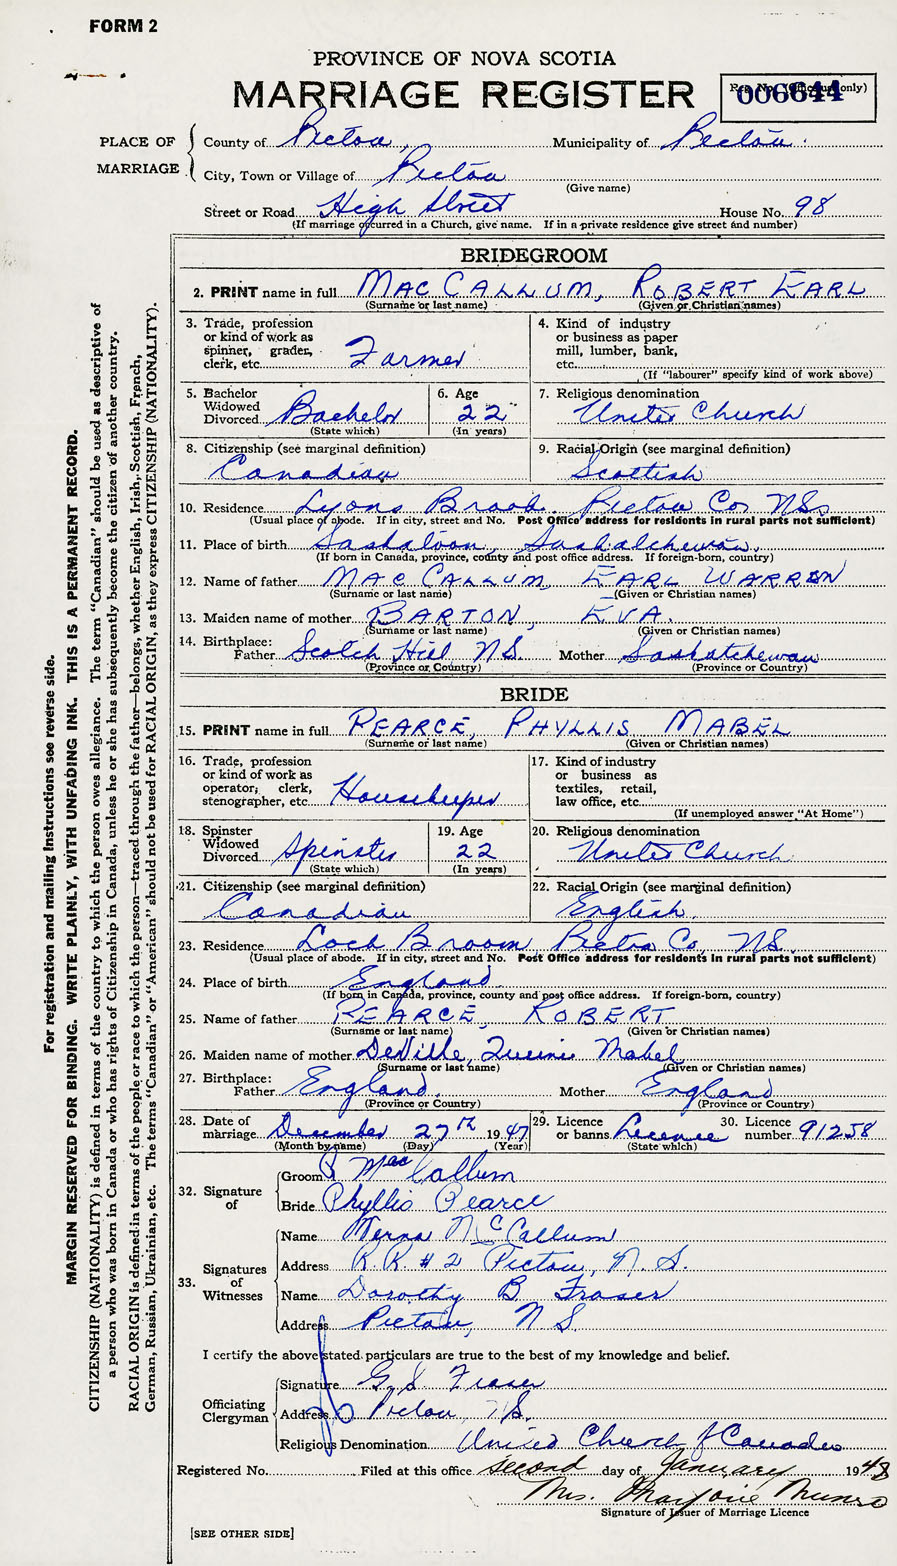 FORM 2
PROVINCE OF NOVA SCOTIA
MARRIAGE REGISTER
Reg. No. (Office use only)
006644
PLACE OF MARRIAGE
County of Pictou, Municipality of Pictou.
City, Town or Village of Pictou
(Give name)
Street or Road High Street House No. 98
(If marriage occurred in a Church, give name. If in a private residence give street and number)
BRIDEGROOM
2. PRINT name in full MAC CALLUM, ROBERT EARL
(Surname or last name) (Given or Christian names)
3. Trade, profession or kind of work as spinner, grader, clerk, etc. Farmer
4. Kind of industry or business as paper mill, lumber, bank, etc.
(If "labourer" specify kind of work above)
5. Bachelor Widowed Divorced Bachelor
(State which)
6. Age 22
(In years)
7. Religious denomination
United Church
8. Citizenship (see marginal definition)
Canadian
9. Racial Origin (see marginal definition)
Scottish
10. Residence Lyons Brook Pictou Co NS
(Usual place of abode. If in city, street and No. Post Office address for residents in rural parts not sufficient)
11. Place of birth Saskatoon, Saskatchewan.
(If born in Canada, province, county and post office address. If foreign-born, country)
12. Name of father MAC CALLUM, EARL WARREN
(Surname or last name) (Given or Christian names)
13. Maiden name of mother BARTON, EVA.
(Surname or last name) (Given or Christian names)
14. Birthplace:
Father Scotch Hill N.S. Mother Saskatchewan
(Province or Country) (Province or Country)
BRIDE
15. PRINT name in full PEARCE, PHYLLIS MABEL
(Surname or last name) (Given or Christian names)
16. Trade, profession or kind of work as operator, clerk, stenographer, etc. Housekeeper
17. Kind of industry or business as textiles, retail, law office, etc.
(If unemployed answer "At Home")
18. Spinster Widowed Divorced Spinster
(State which)
19. Age 22
(In years)
20. Religious denomination
United Church
21. Citizenship (see marginal definition)
Canadian
22. Racial Origin (see marginal definition)
English.
23. Residence Loch Broom Pictou Co, N.S.
(Usual place of abode. If in city, street and No. Post Office address for residents in rural parts not sufficient)
24. Place of birth England.
(If born in Canada, province, county and post office address. If foreign-born, country)
25. Name of father PEARCE, ROBERT
(Surname or last name) (Given or Christian names)
26. Maiden name of mother DeVille, Mabel
(Surname or last name) (Given or Christian names)
27. Birthplace:
Father England. Mother England
(Province or Country) (Province or Country)
28. Date of marriage December 27th 1947
(Month by name) (Day) (Year)
29. Licence or banns Licence
(State which)
30. Licence number 91258
32. Signature of
Groom R MacCallum
Bride Phyllis Pearce
33. Signatures of Witnesses
Name Verna McCallum
Address R.R. #2 Pictou, N.S.
Name Dorothy B Fraser
Address Pictou, N S.
I certify the above stated particulars are true to the best of my knowledge and belief.
Officiating Clergyman
Signature G S Fraser
Address Pictou, N.S.
Religious Denomination United Church of Canada
Registered No. Filed at this office second day of January 1948
Mrs. Marjorie Munro
Signature of Issuer of Marriage Licence
[SEE OTHER SIDE]
For registration and mailing instructions see reverse side.
MARGIN RESERVED FOR BINDING. WRITE PLAINLY, WITH UNFADING INK. THIS IS A PERMANENT RECORD.
CITIZENSHIP (NATIONALITY) is defined in terms of the country to which the person owes allegiance. The term "Canadian" should be used as descriptive of
a person who was born in Canada or who has rights of Citizenship in Canada, unless he or she has subsequently become the citizen of another country.
RACIAL ORIGIN is defined in terms of the people or race to which the person—traced through the father—belongs, whether English, Irish, Scottish, French,
German, Russian, Ukrainian, etc. The terms "Canadian" or "American" should not be used for RACIAL ORIGIN, as they express CITIZENSHIP (NATIONALITY).